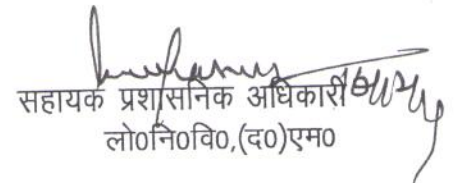 सहायक प्रशासनिक अधिकारी
लो0नि0वि0,(द0)एम0